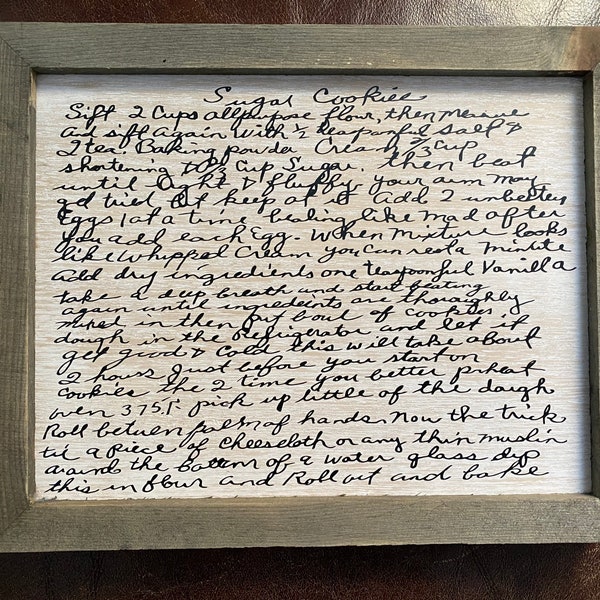 Sugar Cookies
Sift 2 Cups allpurpose flour, then measure
and sift again with ½ teaspoonful salt &
2 tea. Baking powder Cream ⅔ Cup
shortening & ⅔ Cup Sugar. then beat
until light & fluffy. your arm may
get tried but keep at it add 2 unbeaten
Eggs 1 at a time beating like mad after
you add each Egg. When mixture looks
like Whipped Cream you can rest a minute
add dry ingredients one teaspoonful Vanilla
take a deep breath and start beating
again until ingredients are thoroughly
mixed in then put bowl of cookies
dough in the Refrigerator and let it
get good & cold this will take about
2 hours Just before you start on
cookies the 2 time you better preheat
oven 375F. pick up little of the dough
Roll between palm of hands. Now the trick
tie a piece of cheesecloth or any thin muslin
around the bottom of a water glass dip
this in flour and Roll out and bake